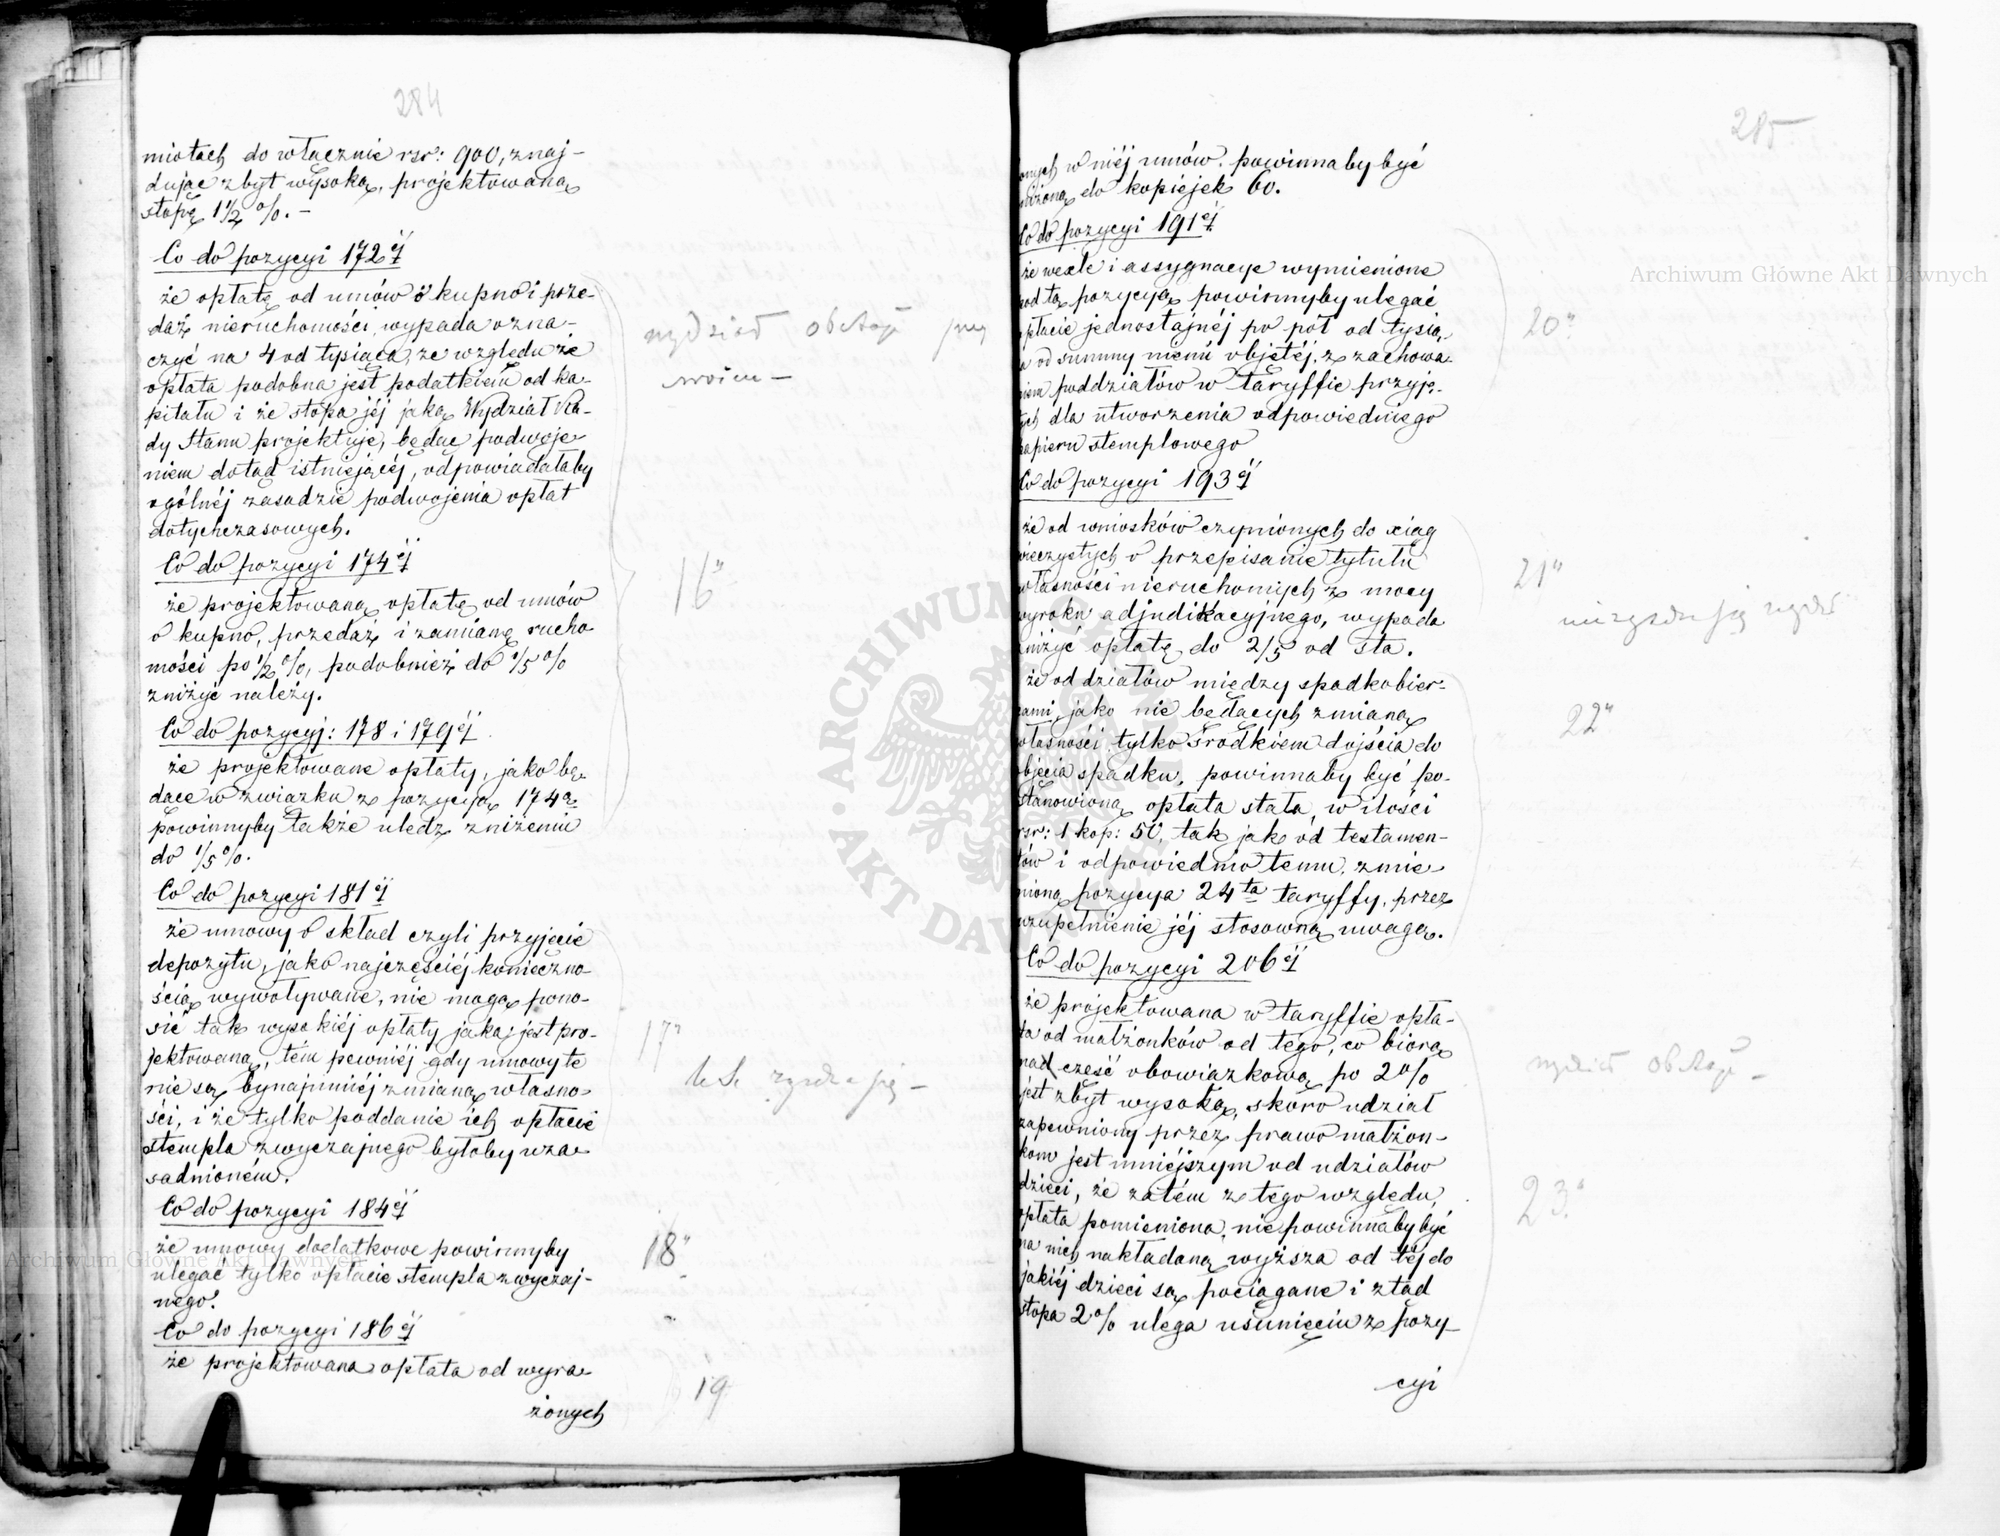 284
miotach do włącznie rsr: 900, znaj-
dując zbyt wysoką, projektowaną
stopę 1½ %. -
Co do pozycyi 172éj
że opłatę od umów o kupno i prze-
daż nieruchomości, wypada ozna-
czyć na 4 od tysiąca, ze względu że
opłata podobna jest podatkiem od ka-
pitału i że stopa jéj jaką Wydział Ra-
dy Stanu projektuje, będąc podwoje-
niem dotąd istniejącéj, odpowiadałaby
ogólnéj zasadzie podwojenia opłat
dotychczasowych.
Co do pozycyi 174éj
że projektowaną opłatę od umów
o kupno, przedaż i zamianę rucho-
mości po ½ %, podobnież do 1/5 %
zniżyć należy.
Co do pozycyj: 178 i 179éj
że projektowane opłaty, jako bę-
dące w związku z pozycyą 174ą
powinnyby także uledz zniżeniu
do 1/5 %.
Co do pozycyi 181éj
że umowy o skład czyli przyjęcie
depozytu, jako najczęściéj konieczno-
ścią wywoływane, nie mogą pono-
sić tak wysokiéj opłaty jaka jest pro-
jektowaną, tém pewniéj gdy umowy te
nie są bynajmniéj zmianą własno-
ści, i że tylko poddanie ich opłacie
stempla zwyczajnego byłoby uza-
sadnioném.
Co do pozycyi 184éj
że umowy dodatkowe powinnyby
ulegać tylko opłacie stempla zwyczaj-
nego.
Co do pozycyi 186éj
że projektowana opłata od wyra-
żonych
wydział obstaje przy
swoim -
16"
17"
zgadza się -
18"
19
285
onych w niéj umów, powinnaby być
niżoną do kopiejek 60.
Co do pozycyi 191éj
że wexle i assygnacye wymienione
pod tą pozycyą powinnyby ulegać
opłacie jednostajnéj po pół od tysią-
ca od summy niemi objętéj, z zachowa-
niem poddziałów w taryffie przyję-
tych dla utworzenia odpowiedniego
papieru stemplowego
Co do pozycyi 193éj
że od wniosków czynionych do xiąg
wieczystych o przepisanie tytułu
własności nieruchomych z mocy
wyroku adjudikacyjnego, wypada
zniżyć opłatę do 2/5 od sta.
że od działów między spadkobier-
cami, jako nie będących zmianą
własności tylko środkiem dojścia do
objęcia spadku, powinnaby być po-
stanowioną opłata stała, w ilości
rsr: 1 kop: 50, tak jak od testamen-
tów i odpowiednio temu, zmie-
nioną pozycya 24ta taryffy, przez
uzupełnienie jéj stosowną uwagą.
Co do pozycyi 206éj
że projektowana w taryffie opła-
ta od małżonków od tego, co biorą
nad cześć obowiązkową po 2 %
jest zbyt wysoką, skoro udział
zapewniony przez prawo małżon-
kom jest mniejszym od udziałów
dzieci, że zatém z tego względu,
opłata pomieniona, nie powinnaby być
na nich nakładaną wyższa od téj do
jakiéj dzieci są pociągane i ztąd
stopa 2 % ulega usunięciu z pozy-
cyi
20"
21"
nie zgadza się wydział
22"
wydział obstaje -
23"
Archiwum Główne Akt Dawnych
Archiwum Główne Akt Dawnych
ARCHIWUM GŁÓWNE AKT DAWNYCH